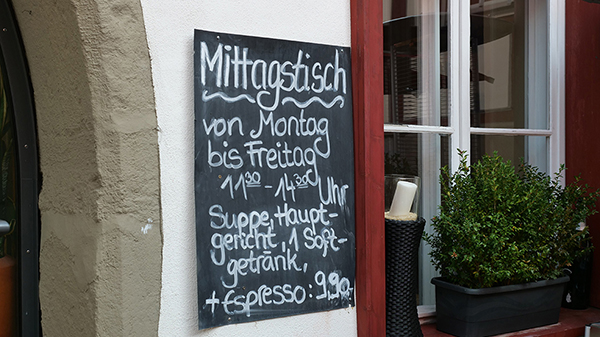 Mittagstisch
von Montag
bis Freitag
11³⁰ - 14³⁰ Uhr
Suppe, Haupt-
gericht, 1 Soft-
getränk,
+ Espresso: 9,90.-